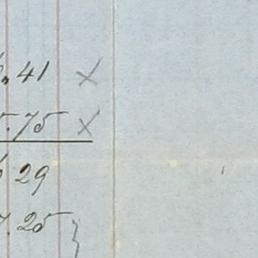 .41 x
.75 x
29
.25